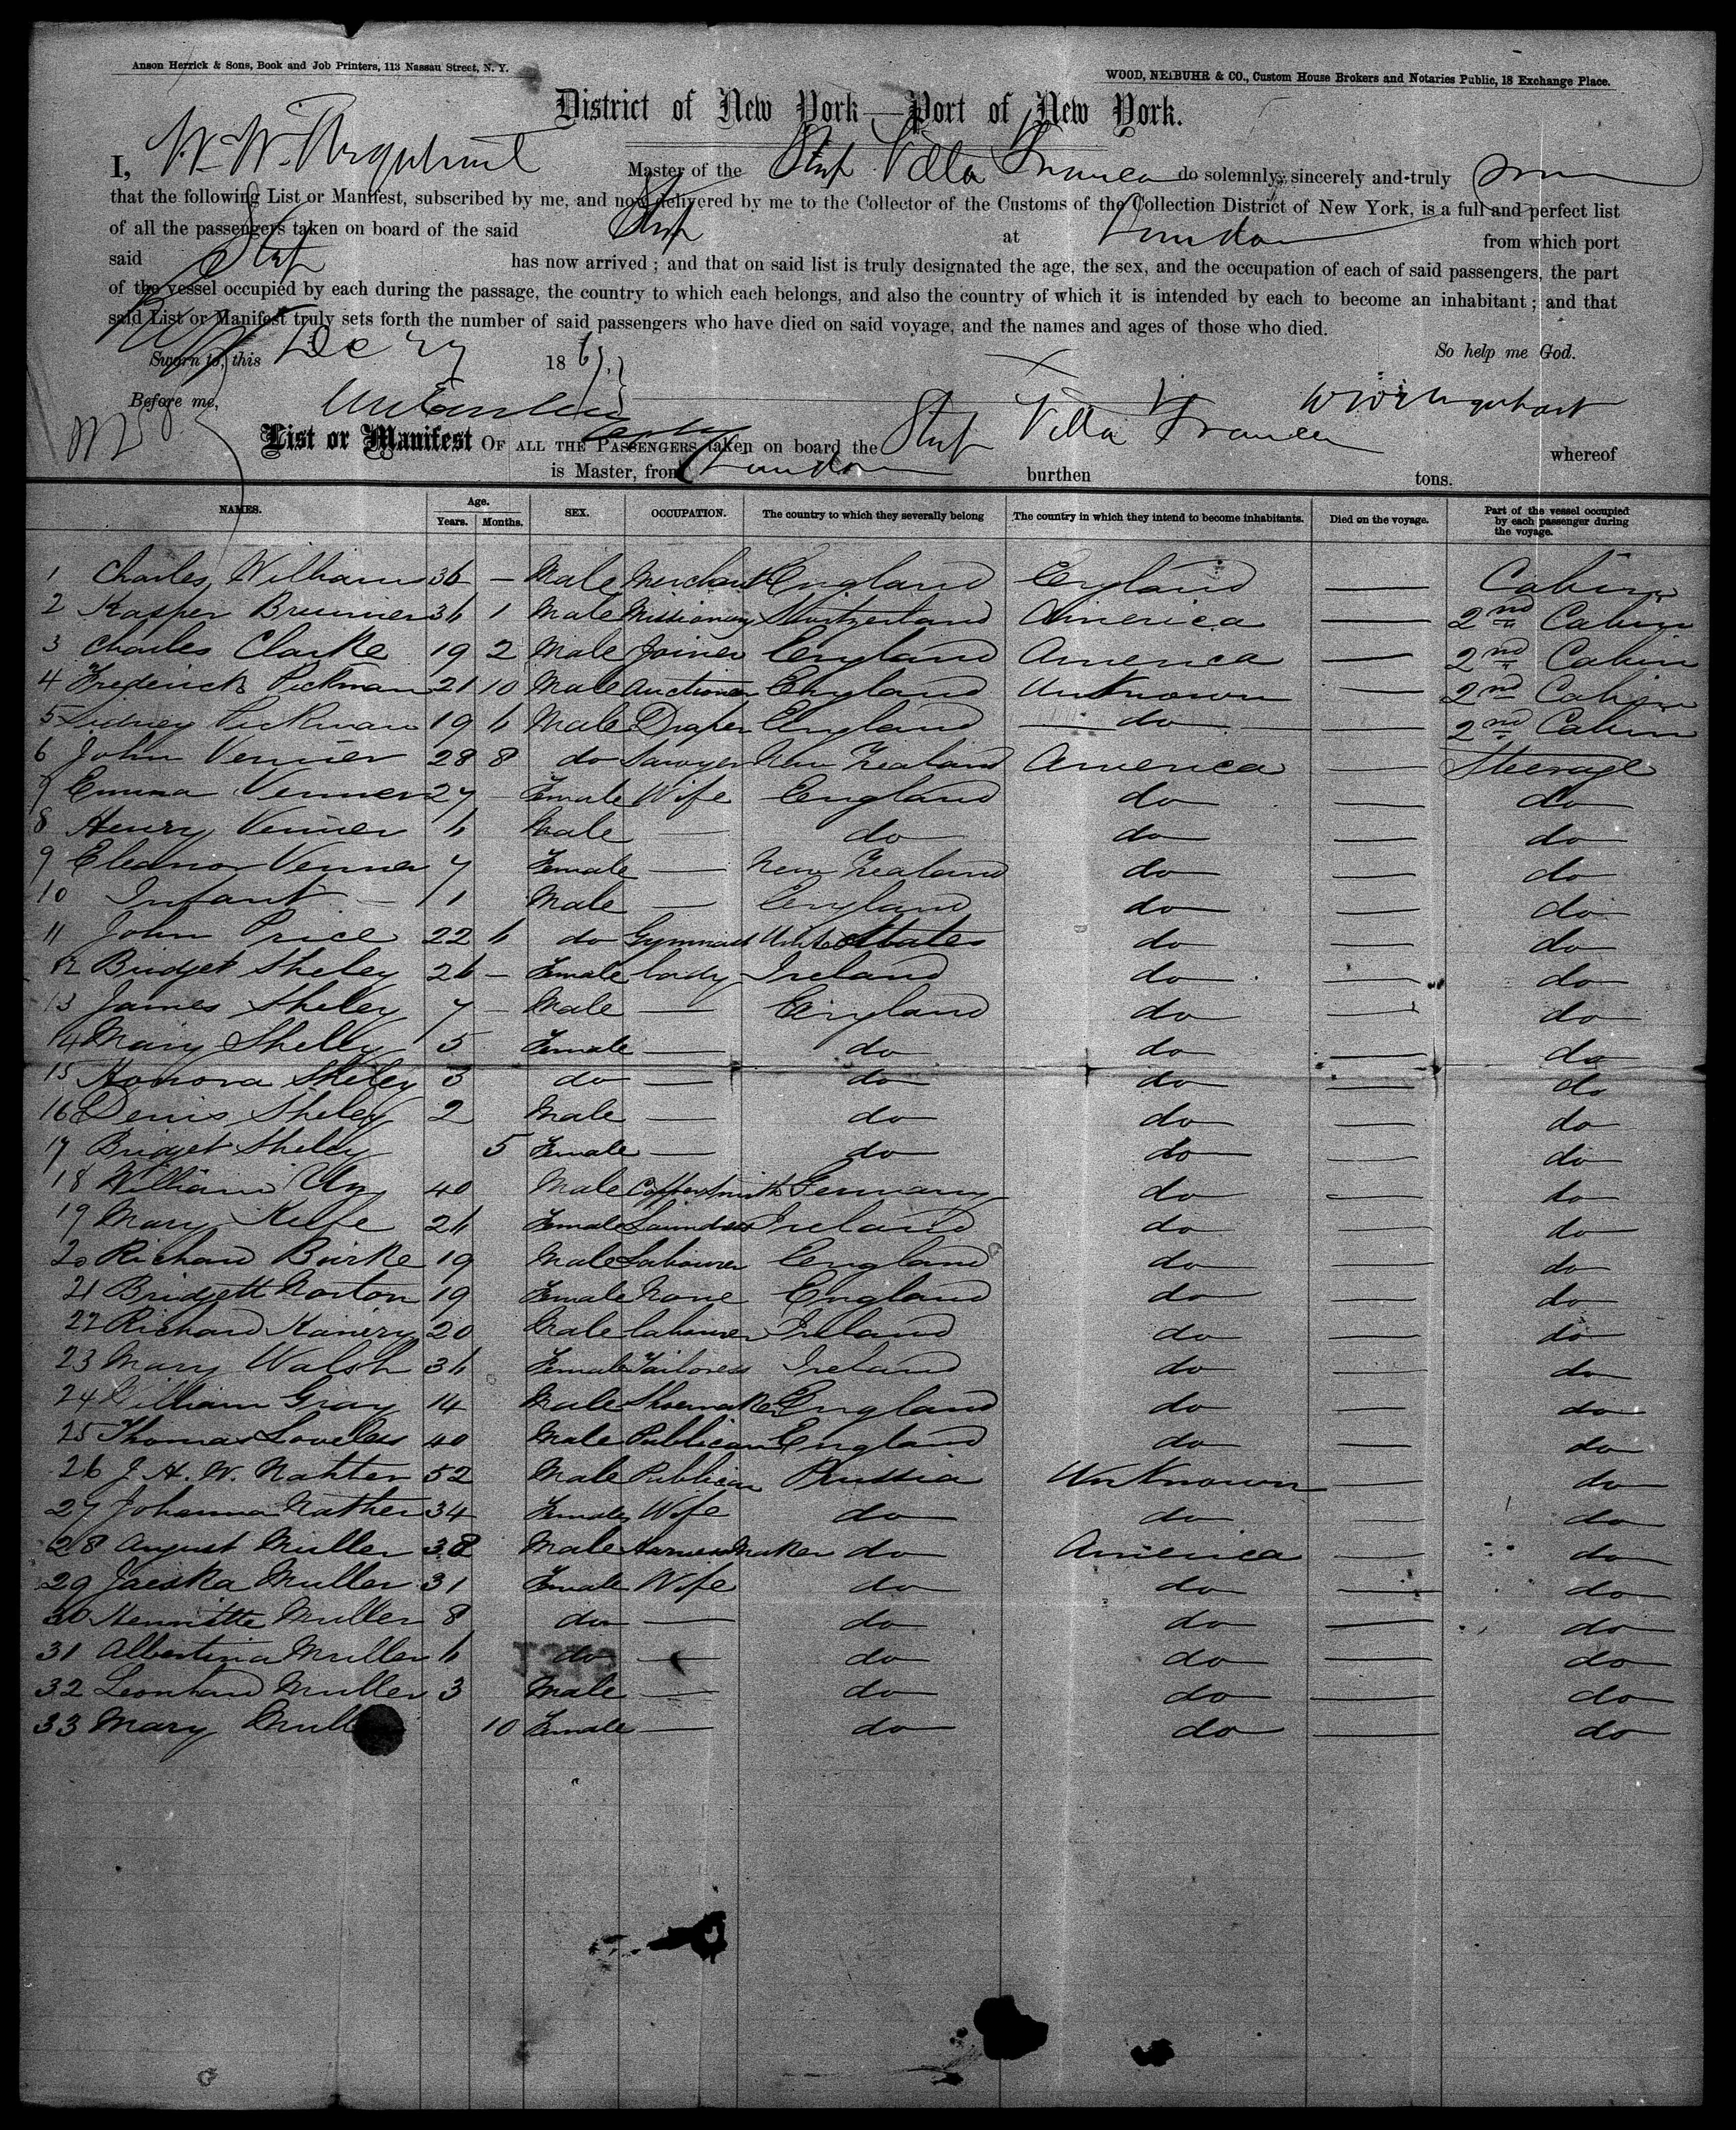 Anson Herrick & Sons, Book and Job Printers, 113 Nassau Street, N. Y.
WOOD, NEIBUHR & CO., Custom House Brokers and Notaries Public, 18 Exchange Place.
District of New York—Port of New York.
I, W. W. Urquhart Master of the Stmp Villa Franca do solemnly, sincerely and truly
that the following List or Manifest, subscribed by me, and now delivered by me to the Collector of the Customs of the Collection District of New York, is a full and perfect list
of all the passengers taken on board of the said Stmp at London from which port
said Stmp has now arrived; and that on said list is truly designated the age, the sex, and the occupation of each of said passengers, the part
of the vessel occupied by each during the passage, the country to which each belongs, and also the country of which it is intended by each to become an inhabitant; and that
said List or Manifest truly sets forth the number of said passengers who have died on said voyage, and the names and ages of those who died.
Sworn to, this Dec 27 1867. So help me God.
Before me, W W Urquhart
List or Manifest OF ALL THE PASSENGERS taken on board the Stmp Villa Franca whereof
is Master, from London burthen tons.
NAMES. Age. Years. Months. SEX. OCCUPATION. The country to which they severally belong The country in which they intend to become inhabitants. Died on the voyage. Part of the vessel occupied by each passenger during the voyage.
1 Charles Williams 36 — Male Merchant England England — Cabin
2 Kasper Brunner 36 1 Male Missionary Switzerland America — 2nd Cabin
3 Charles Clarke 19 2 Male Joiner England America — 2nd Cabin
4 Frederick Pickman 21 10 Male Auctioner England Unknown — 2nd Cabin
5 Sidney Pickman 19 6 Male Draper England do — 2nd Cabin
6 John Venner 28 8 do Sawyer New Zealand America — Steerage
7 Emma Venner 27 — Female Wife England do — do
8 Henry Venner 6 Male — do do — do
9 Eleanor Venner 7 Female — New Zealand do — do
10 Infant — 1 Male — England do — do
11 John Price 22 6 do Gymnast United States do — do
12 Bridget Sheley 26 — Female Lady Ireland do — do
13 James Sheley 7 — Male — England do — do
14 Mary Shelly 5 Female — do do — do
15 Honora Sheley 3 do — do do — do
16 Denis Sheley 2 Male — do do — do
17 Bridget Sheley 5 Female — do do — do
18 William 40 Male Coppersmith Germany do — do
19 Mary Kelfe 26 Female Laundress Ireland do — do
20 Richard Burke 19 Male Labourer England do — do
21 Bridgett Norton 19 Female None England do — do
22 Richard Kanery 20 Male Labourer Ireland do — do
23 Mary Walsh 36 Female Tailoress Ireland do — do
24 William Gray 14 Male Shoemaker England do — do
25 Thomas Loveless 40 Male Publican England do — do
26 J. H. W. Nahter 52 Male Publican Prussia Unknown — do
27 Johanna Nather 34 Female Wife do do — do
28 August Muller 38 Male Harness Maker do America — do
29 Jaeska Muller 31 Female Wife do do — do
30 Henriette Muller 8 do — do do — do
31 Albertina Muller 6 do — do do — do
32 Leonhard Muller 3 Male — do do — do
33 Mary Mull 10 Female — do do — do